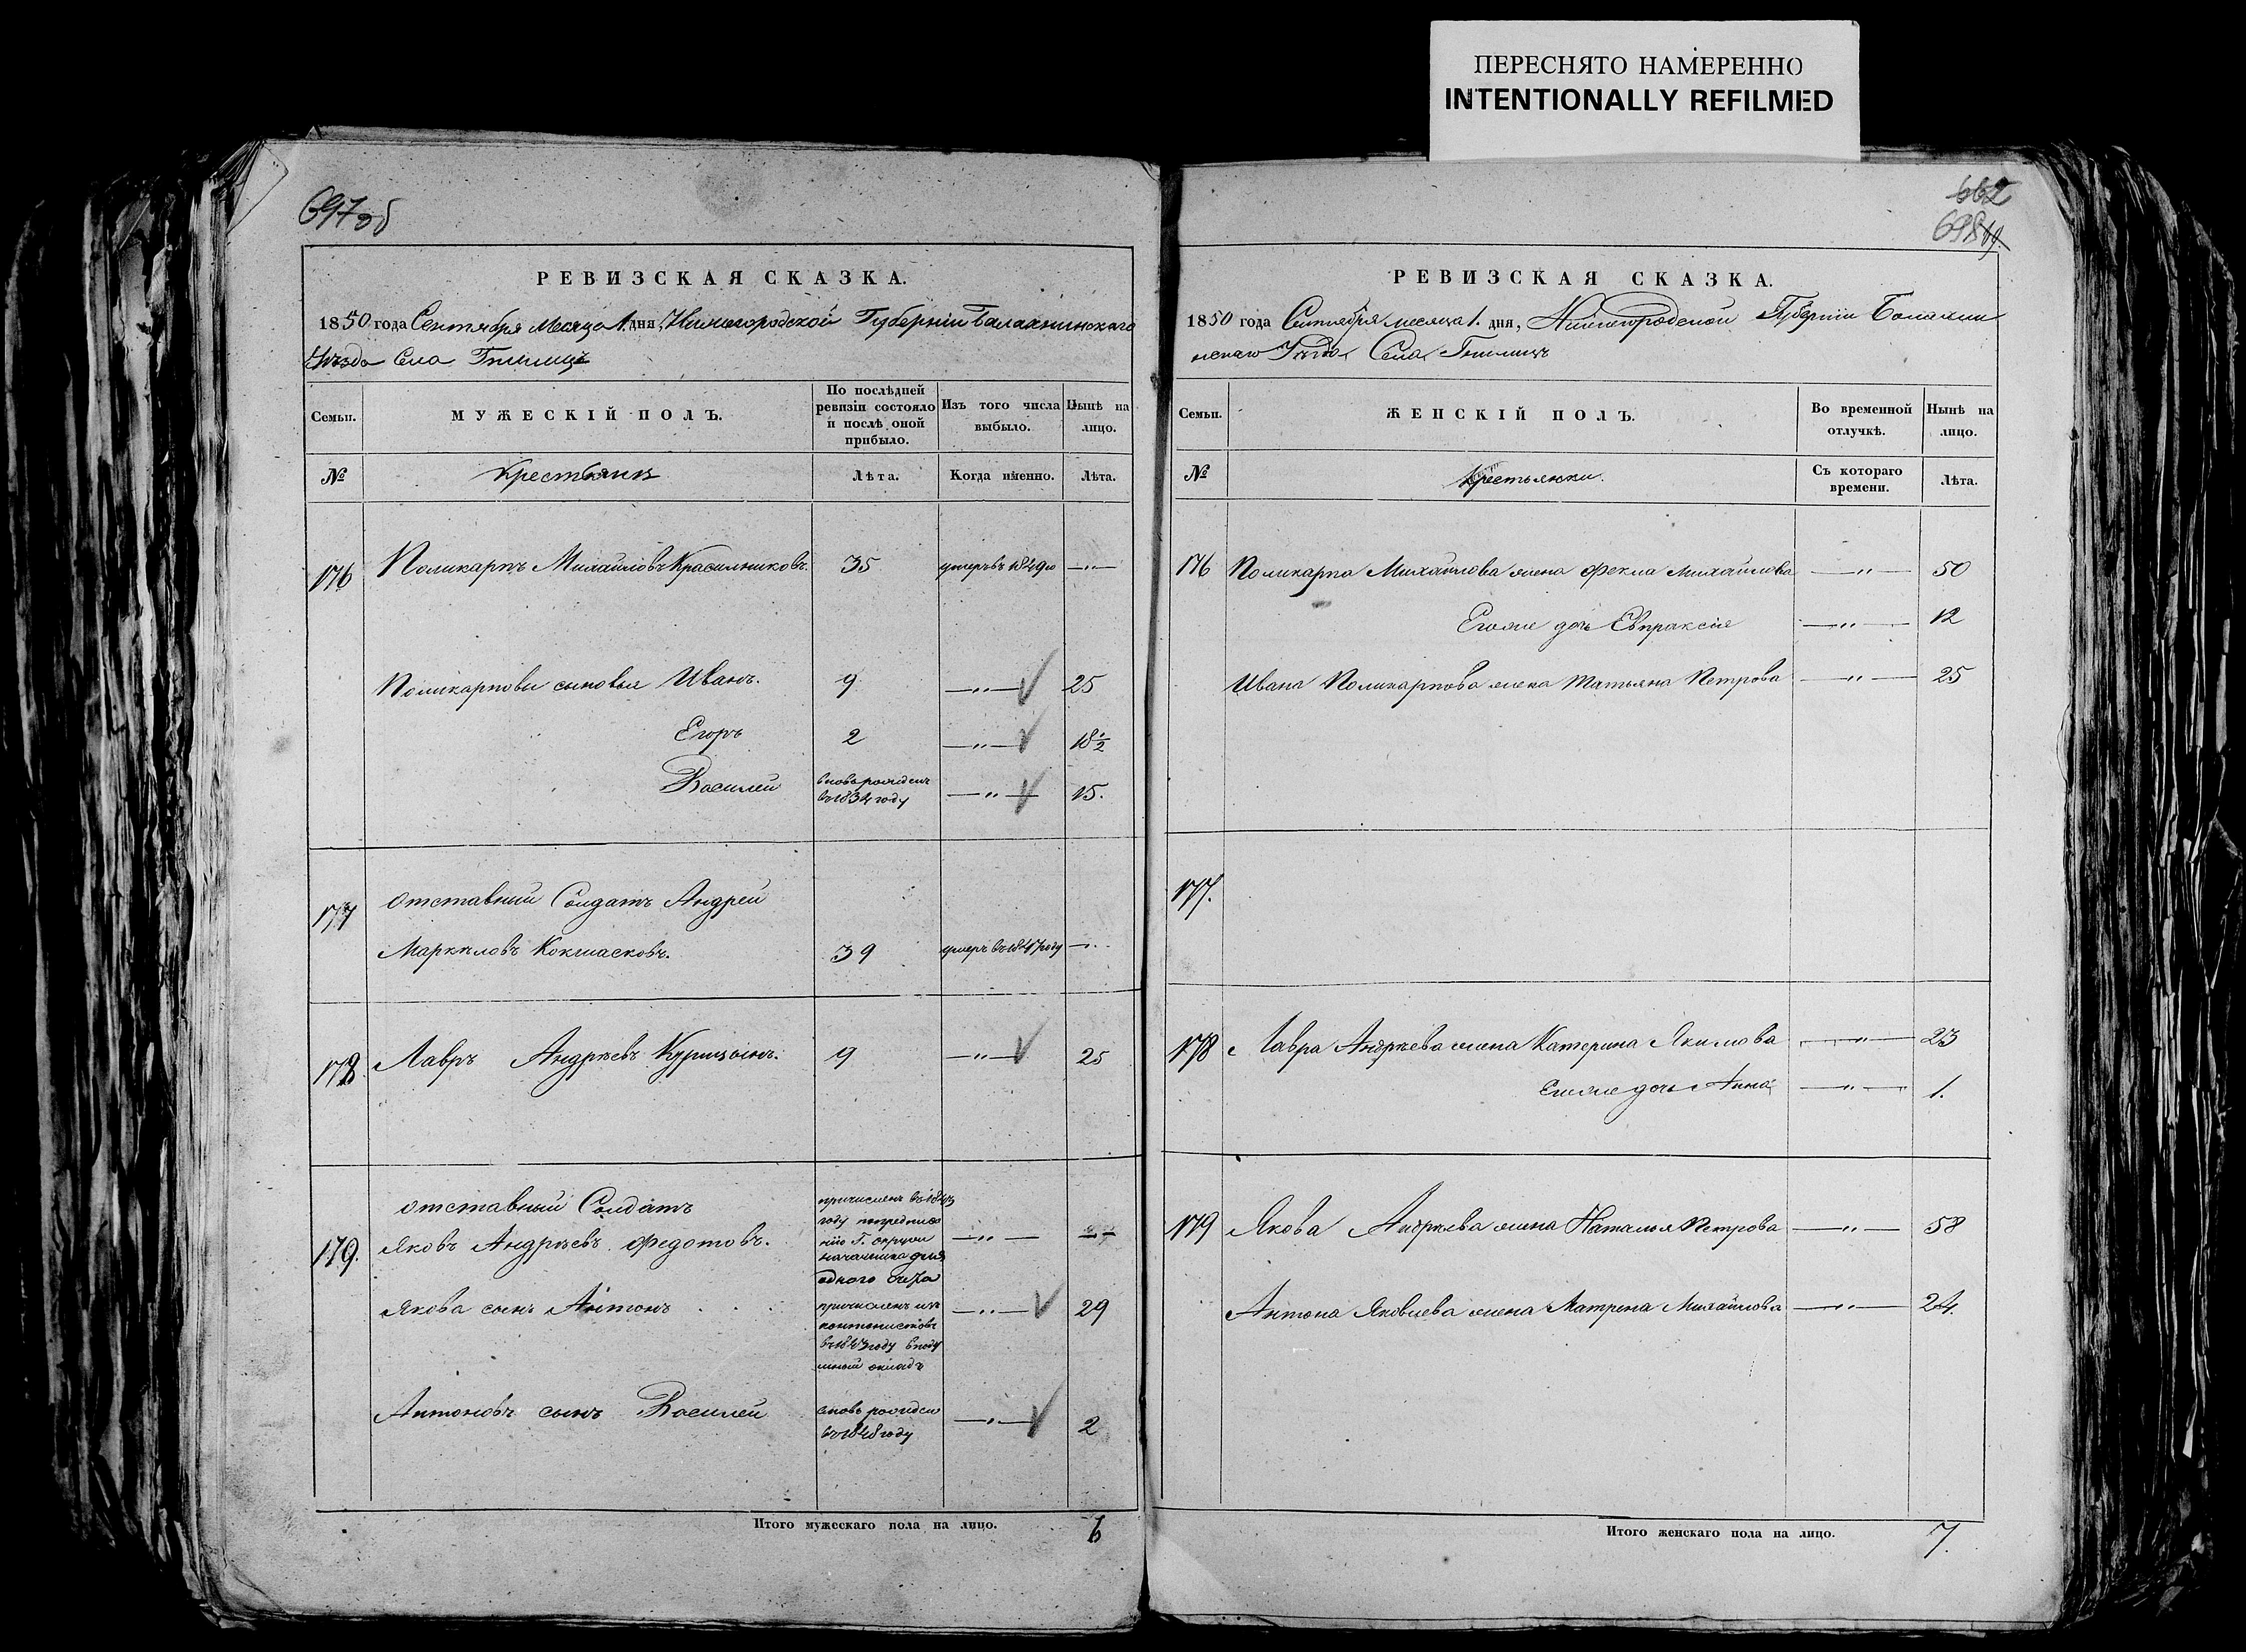 ПЕРЕСНЯТО НАМЕРЕННО
INTENTIONALLY REFILMED
697об
662
698
РЕВИЗСКАЯ СКАЗКА.
1850 года Сентября Месяца 1. дня, Нижегородской Губерніи Балахнинскаго
Уѣзда Села Гнилицъ
Семьи.
МУЖЕСКІЙ ПОЛЪ.
По послѣдней
ревизіи состояло
и послѣ оной
прибыло.
Изъ того числа
выбыло.
Нынѣ на
лицо.
№
Крестьянъ
Лѣта.
Когда именно.
Лѣта.
176 Поликарпъ Михайловъ Красильниковъ. 35 умеръ въ 1849го —"—
Поликарповы сыновья Иванъ. 9 —"— 25
Егоръ 2 —"— 18½
Василей вновь рожденъ —"— 15.
въ 1834 году
177 Отставный Солдатъ Андрей
Маркѣловъ 39 умеръ въ 1847 году —"—
178 Лавръ Андрѣевъ Курицынъ. 9 —"— 25
179. отставный Солдатъ
Яковъ Андрѣевъ Федотовъ. —"— —"—
причисленъ въ 1843
году по предписа
нію Г. окружн
начальника для
одного счета
Якова сынъ Антонъ —"— 29
причисленъ изъ
кантонистовъ
въ 1843 году в поду
шный окладъ
Антоновъ сынъ Василей вновь рожден —"— 2
въ 1848 году
Итого мужескаго пола на лицо. 6
РЕВИЗСКАЯ СКАЗКА.
1850 года Сентября месяца 1. дня, Нижегородской Губерніи Балахни
нскаго Уѣзда Села Гнилицъ
Семьи.
ЖЕНСКІЙ ПОЛЪ.
Во временной
отлучкѣ.
Нынѣ на
лицо.
№
Крестьянки.
Съ котораго
времени.
Лѣта.
176 Поликарпа Михайлова жена Фекла Михайлова —"— 50
Егоже дочь Евпраксія —"— 12
Ивана Поликарпова жена Татьяна Петрова —"— 25
177.
178 Лавра Андрѣева жена Катерина Якимова —"— 23
Егоже дочь Анна —"— 1.
179 Якова Андрѣева жена Наталья Петрова —"— 58
Антона Яковлева жена Матрена Михайлова —"— 24.
Итого женскаго пола на лицо. 7.